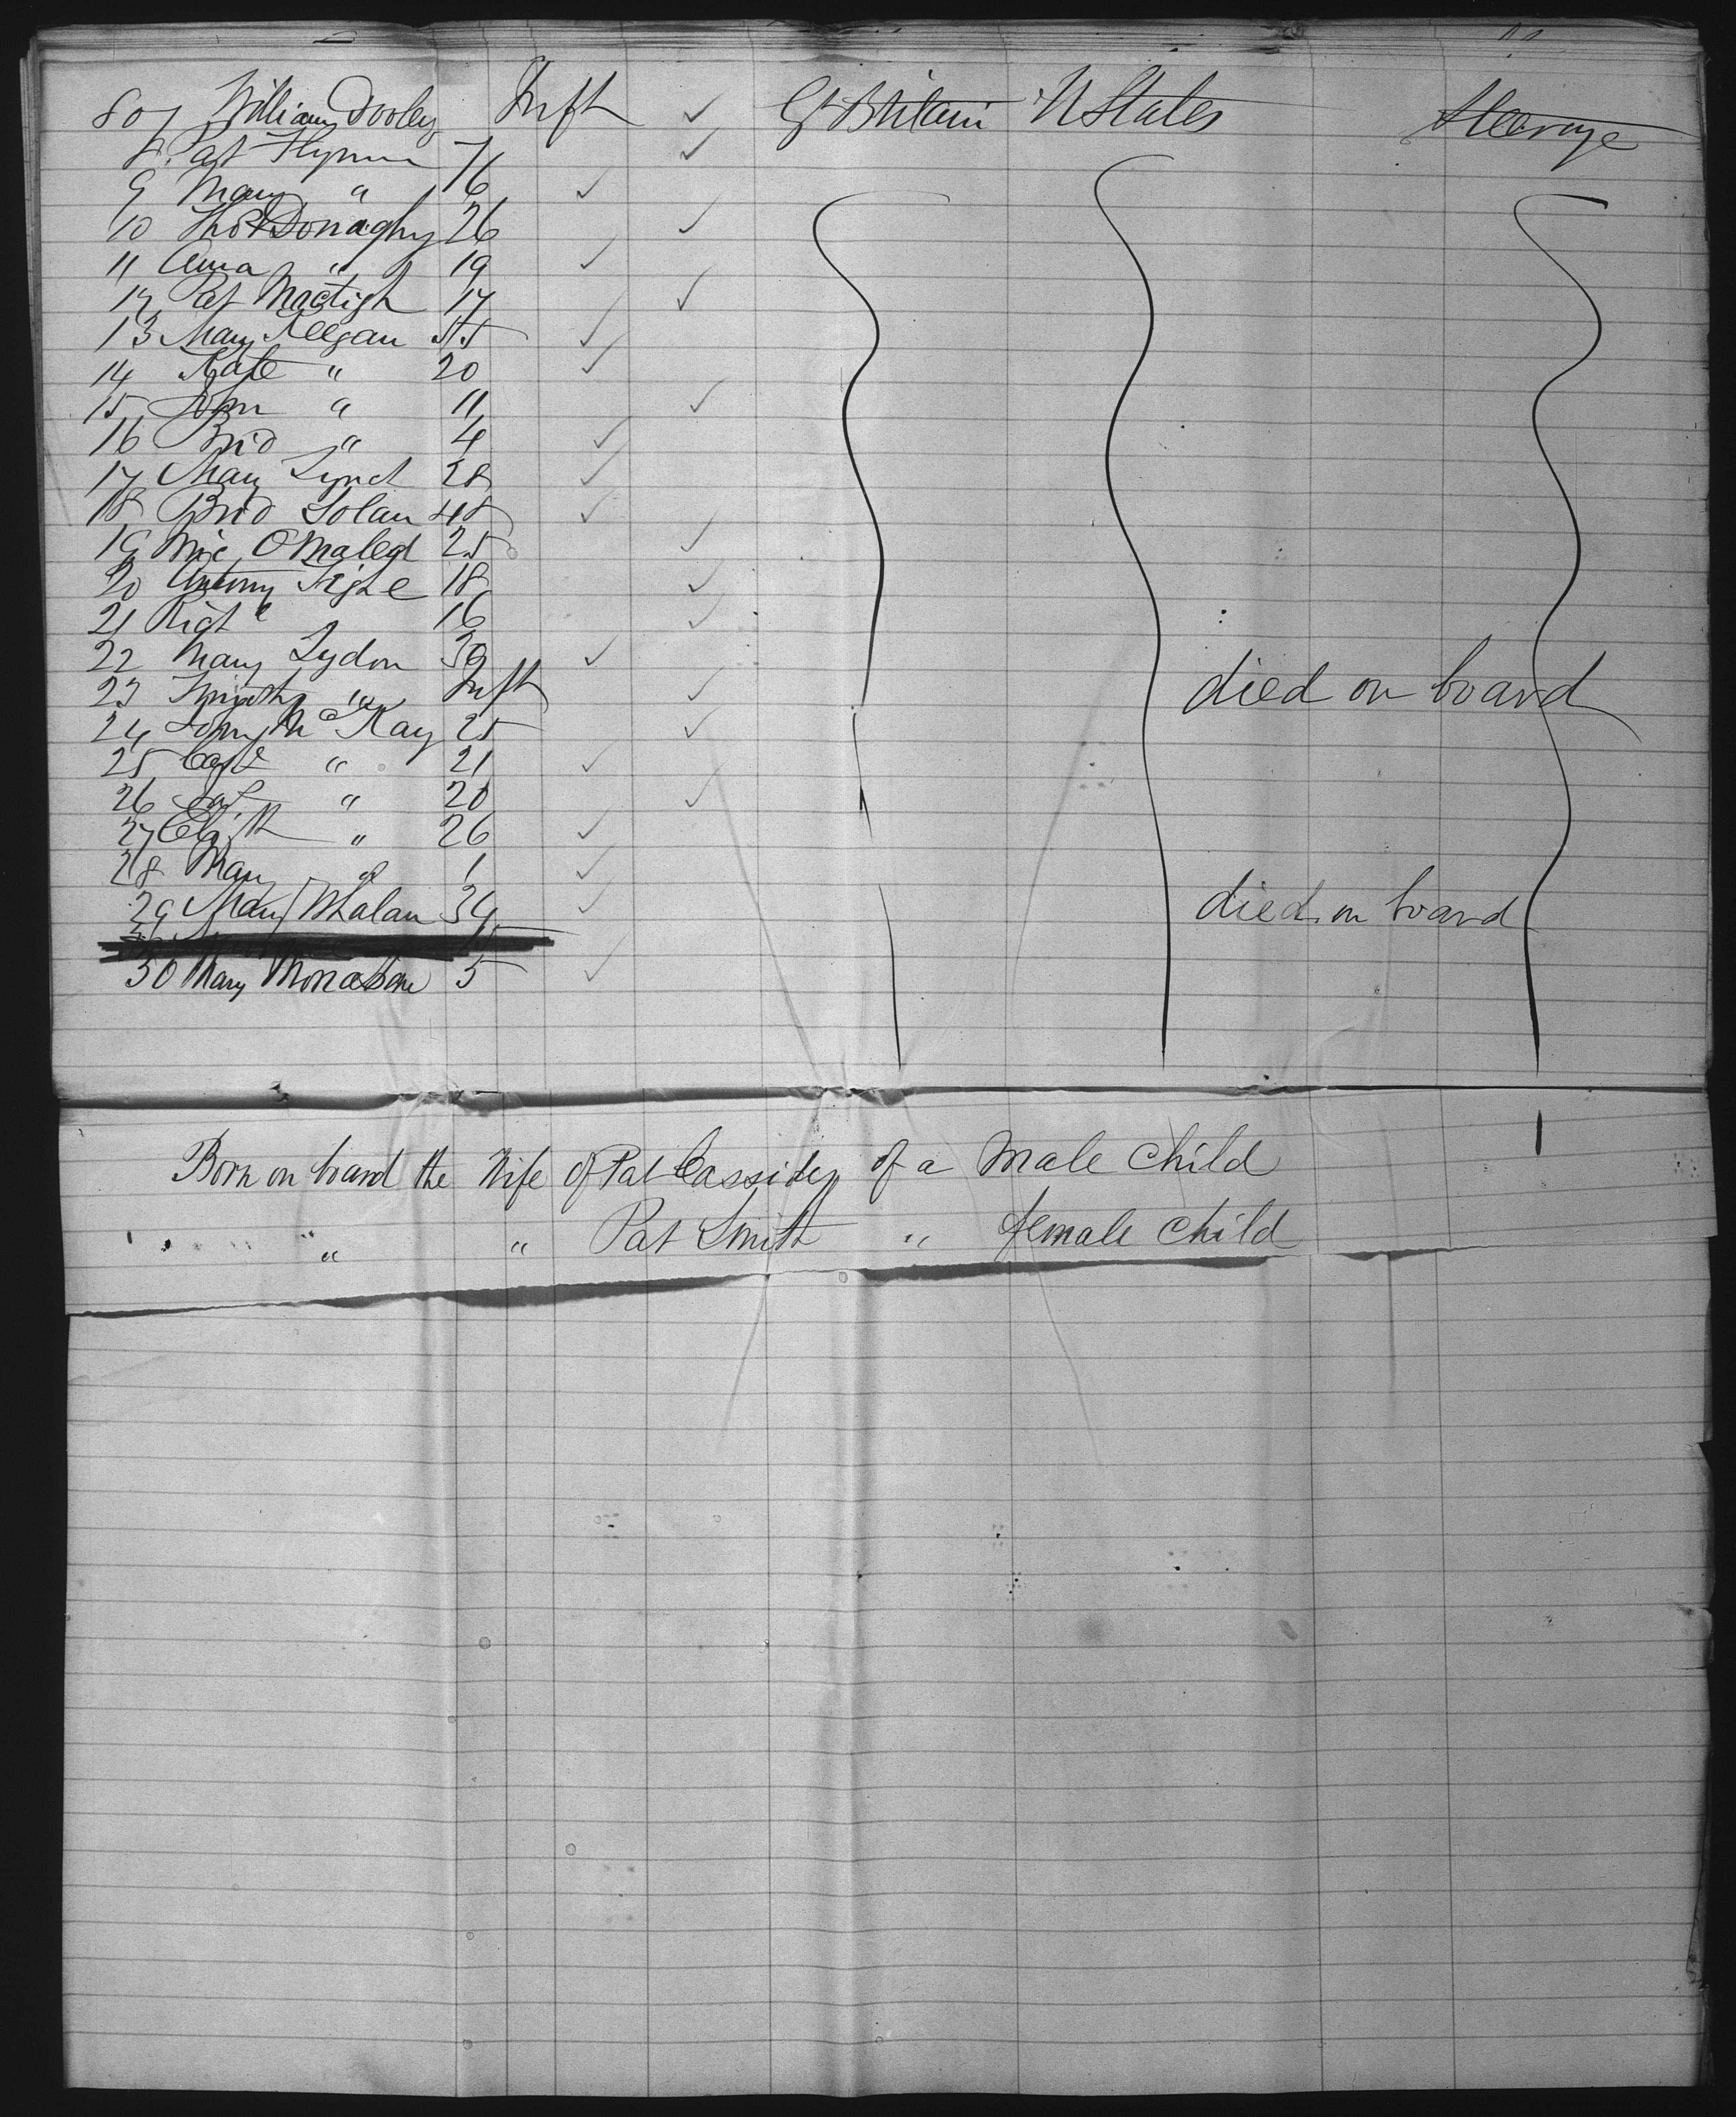 807 William Dooley Inft ✓ Gt Britain U States Steerage
8 Pat Flynn 7 ✓
9 Mary " 6 ✓
10 Thos Donaghy 26 ✓
11 Anna " 19 ✓
12 Pat 17 ✓
13 Mary Keegan 55 ✓
14 Kate " 20 ✓
15 John " 11 ✓
16 Brid " 4 ✓
17 Mary Lynch 28 ✓
18 Brid Solan 48 ✓
19 Mic 25 ✓
20 Antony Tighe 18 ✓
21 16 ✓
22 Mary Lydon 30 ✓
23 " Inft ✓ died on board
24 John McKay 25 ✓
25 Cath " 21 ✓
26 " 20 ✓
27 Elizth " 26 ✓
28 Mary " 1 ✓
29 Mary Whalan 34 ✓ died on board
30 Mary 5 ✓
Born on board the Wife of Pat Cassidy of a Male Child
" " Pat Smith " female child